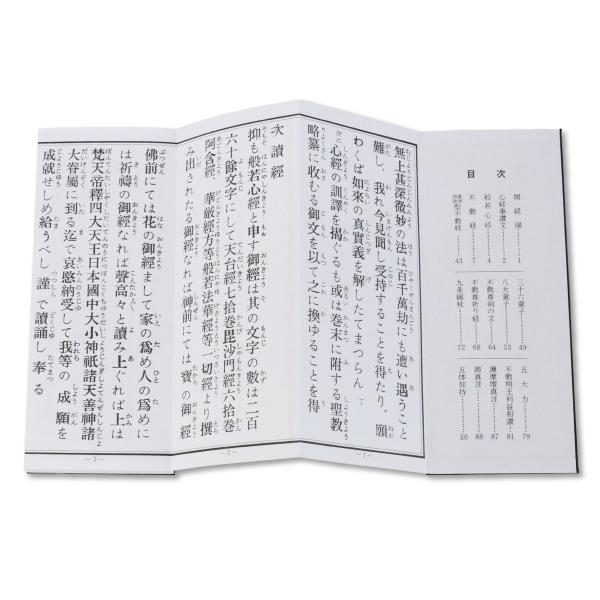 目次
開経偈………1
心経奉讃文………2
般若心経………4
不動経………7
不動経………43
三十六童子………49
八大童子………53
不動尊 の文………64
不動尊祈り経………68
九条錫杖………72
五大力………79
不動明王利益和讃…81
護摩壇真言………87
御真言………88
五体加持………103
無上甚深微妙の法は百千萬劫にも遭い遇うこと
難し、我れ今見聞し受持することを得たり、願
わくば如来の真實義を解したてまつらん 丁
心經の訓譯を揭ぐるも或は巻末に附する聖教
略纂に收むる御文を以て之に換ゆることを得
—1—
次讀經
抑も般若心經と申す御經は其の文字の數は二百
六十餘文字にして天台經七拾巻毘沙門經六拾巻
阿含經、華嚴經方等般若法華經等一切經より撰
み出されたる御經なれば神前にては寶の御經
—2—
佛前にては花の御經まして家の爲め人の爲めに
は祈禱の御經なれば聲高々と讀み上ぐれば上は
梵天帝釋四大天王日本國中大小神祇諸天善神諸
大眷屬に到る迄で哀愍納受して我等の成願を
成就せしめ給うべし謹で讀誦し奉る
—3—